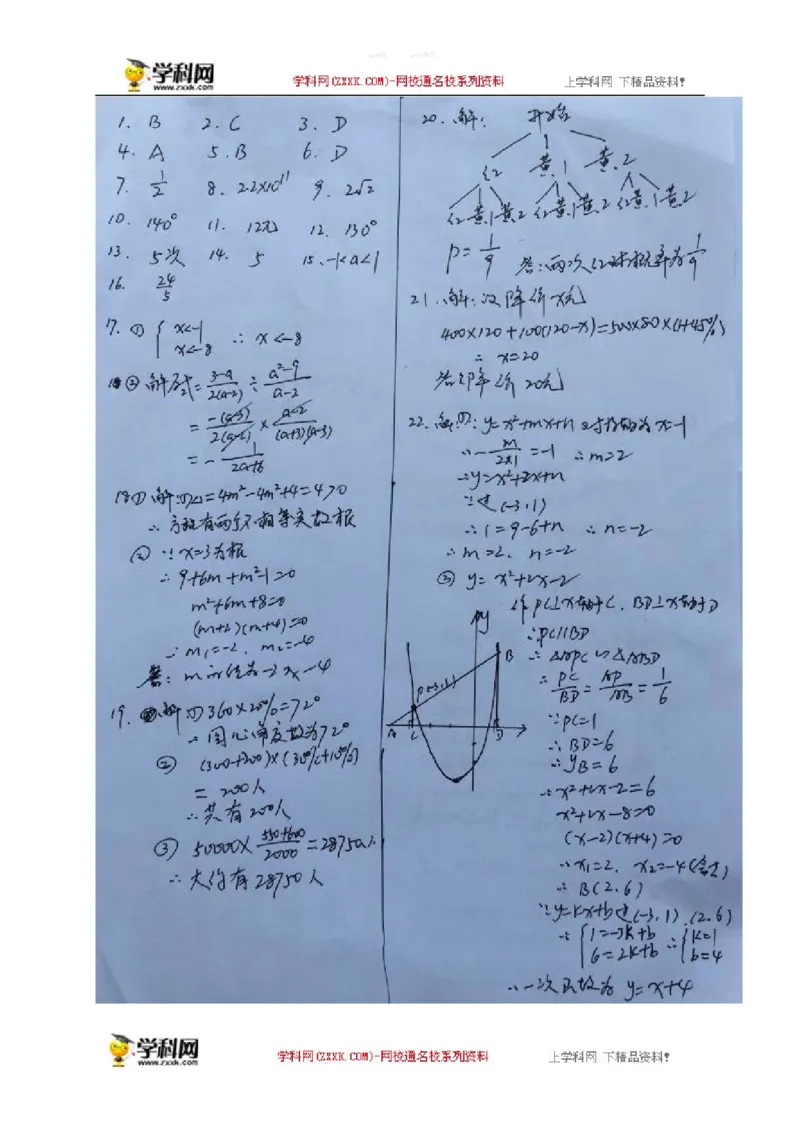 学科网
www.zxxk.com
学科网(ZXXK.COM)-网校通名校系列资料
上学科网 下精品资料!
1. B 2. C 3. D
4. A 5. B 6. D
7. 1/2 8. 2.2×10^11 9. 2√2
10. 140° 11. 12元 12. 130°
13. 5次 14. 5 15. -1<a<1
16. 24/5
17. ① { x<-1
x<-8 ∴ x<-8
② 解:原式= (3-a)/(2(a-2)) ÷ (a²-9)/(a-2)
= -(a-3)/(2(a-2)) × (a-2)/((a+3)(a-3))
= - 1/(2a+6)
18① 解:①△=4m²-4m²+4=4>0
∴方程有两个不相等实数根
② ∵x=3为根
∴9+6m+m²-1=0
m²+6m+8=0
(m+2)(m+4)=0
∴m₁=-2, m₂=-4
答: m的值为-2或-4
19. 解① 360×20%=72°
∴圆心角度数为72°
② (300+200)×(30%+10%)
= 200人
∴共有200人
③ 50000× (550+600)/2000 =28750人
∴大约有28750人
20. 解: 开始
红 黄1 黄2
红 黄1 黄2 红 黄1 黄2 红 黄1 黄2
P= 1/9 答:两次红球概率为1/9
21. 解:设降价x元
400×120+100(120-x)=500×80×(1+45%)
∴ x=20
答:降价20元
22. 解①: y=x²+mx+n 对称轴为x=-1
∴- m/(2×1) =-1 ∴m=2
∴y=x²+2x+n
∵过(-3,1)
∴1=9-6+n ∴n=-2
∴m=2, n=-2
② y=x²+2x-2
作PC⊥x轴于C, BD⊥x轴于D
∴PC∥BD
∴△APC∽△ABD
∴ PC/BD = AP/AB = 1/6
∵PC=1
∴BD=6
∴yB=6
∴x²+2x-2=6
x²+2x-8=0
(x-2)(x+4)=0
∴x₁=2, x₂=-4(舍去)
∴B(2,6)
∵y=kx+b过(-3,1),(2,6)
∴ { 1=-3k+b
6=2k+b ∴ { k=1
b=4
∴一次函数为 y=x+4
y
B
P(-3,1)
A C D
学科网
www.zxxk.com
学科网(ZXXK.COM)-网校通名校系列资料
上学科网 下精品资料!